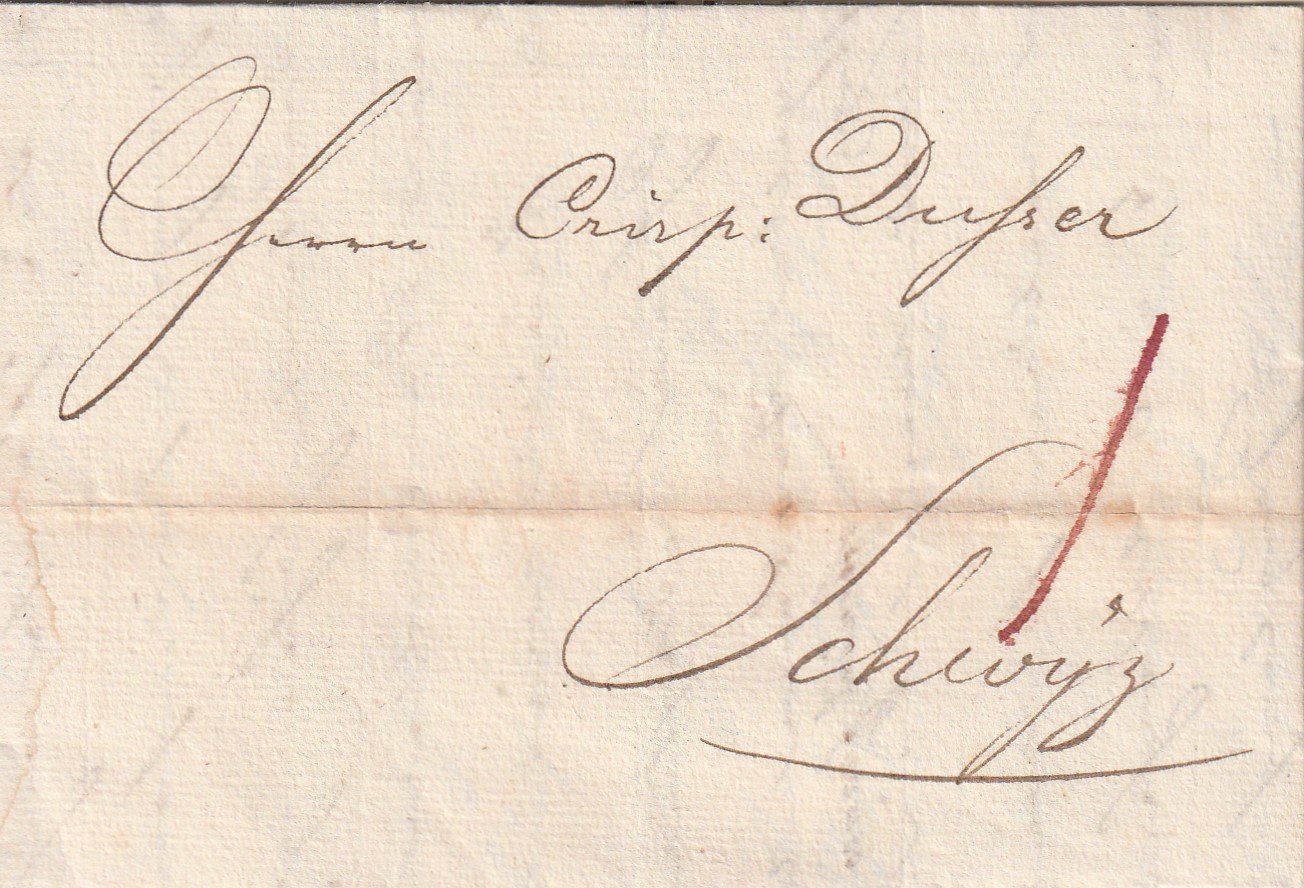 Herrn Crisp: Dusser
1
Schwÿz